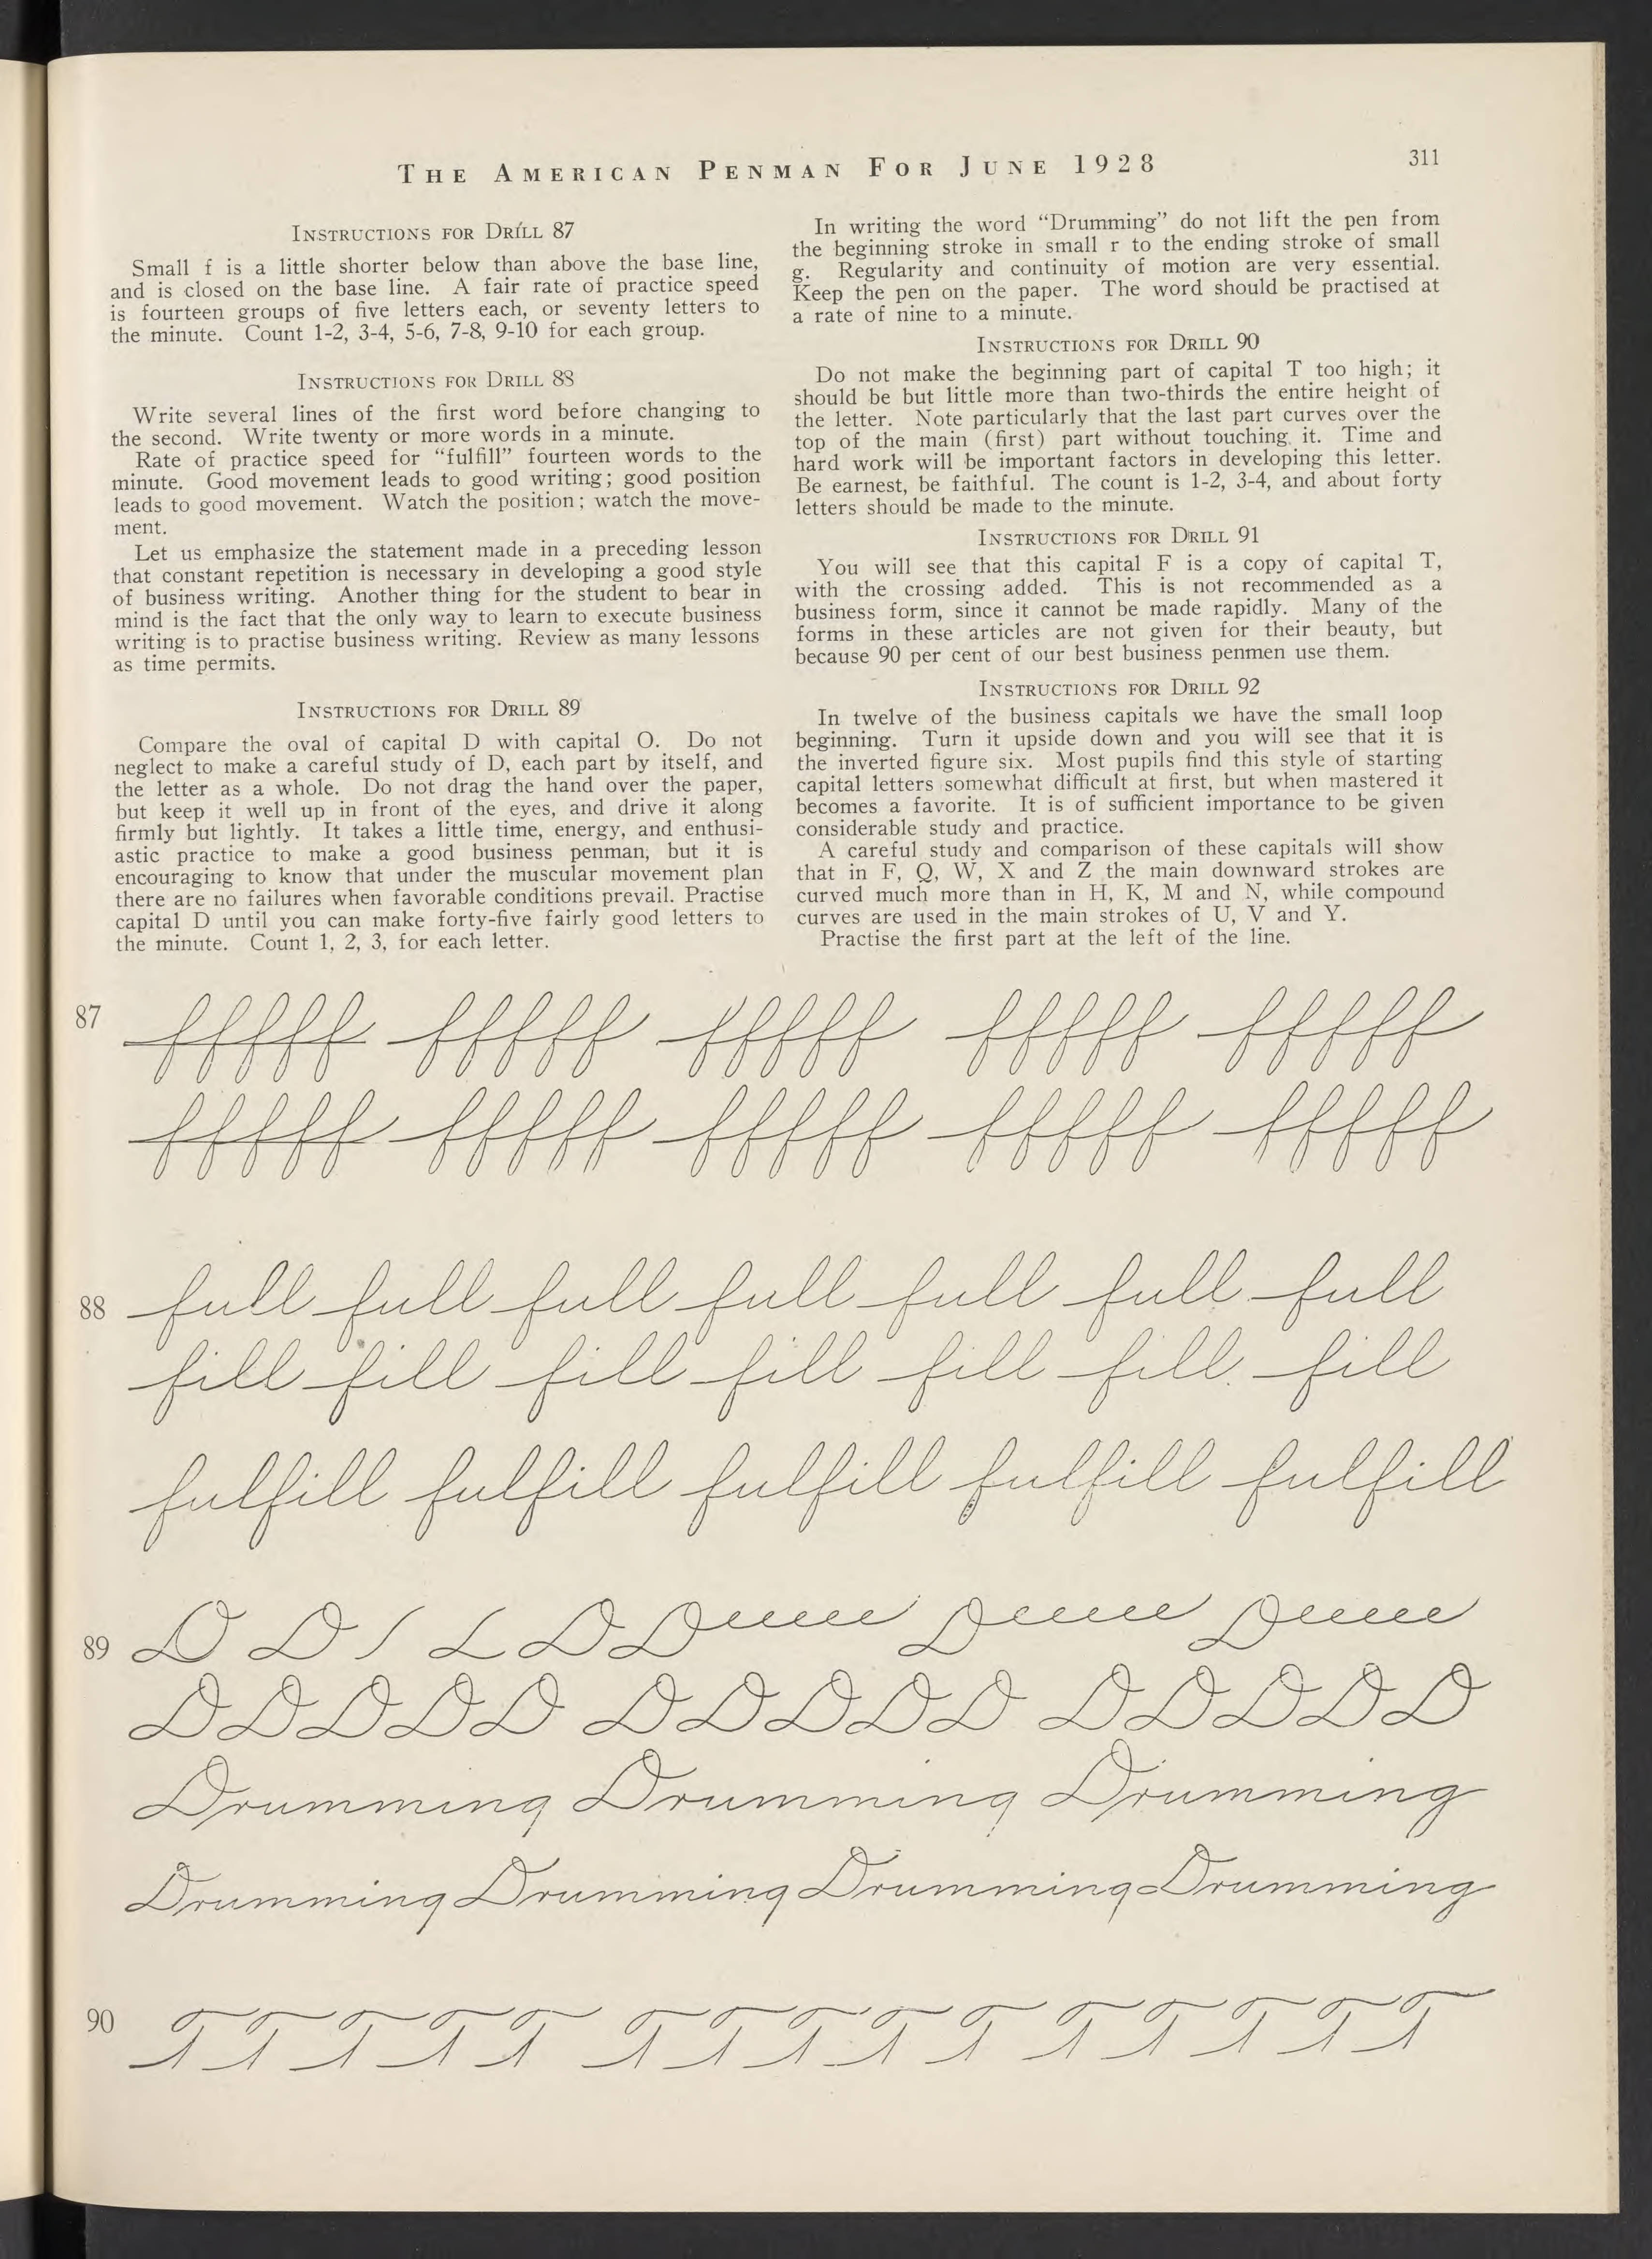 THE AMERICAN PENMAN FOR JUNE 1928
311
INSTRUCTIONS FOR DRILL 87
Small f is a little shorter below than above the base line,
and is closed on the base line. A fair rate of practice speed
is fourteen groups of five letters each, or seventy letters to
the minute. Count 1-2, 3-4, 5-6, 7-8, 9-10 for each group.
INSTRUCTIONS FOR DRILL 88
Write several lines of the first word before changing to
the second. Write twenty or more words in a minute.
Rate of practice speed for “fulfill” fourteen words to the
minute. Good movement leads to good writing; good position
leads to good movement. Watch the position; watch the move-
ment.
Let us emphasize the statement made in a preceding lesson
that constant repetition is necessary in developing a good style
of business writing. Another thing for the student to bear in
mind is the fact that the only way to learn to execute business
writing is to practise business writing. Review as many lessons
as time permits.
INSTRUCTIONS FOR DRILL 89
Compare the oval of capital D with capital O. Do not
neglect to make a careful study of D, each part by itself, and
the letter as a whole. Do not drag the hand over the paper,
but keep it well up in front of the eyes, and drive it along
firmly but lightly. It takes a little time, energy, and enthusi-
astic practice to make a good business penman, but it is
encouraging to know that under the muscular movement plan
there are no failures when favorable conditions prevail. Practise
capital D until you can make forty-five fairly good letters to
the minute. Count 1, 2, 3, for each letter.
In writing the word “Drumming” do not lift the pen from
the beginning stroke in small r to the ending stroke of small
g. Regularity and continuity of motion are very essential.
Keep the pen on the paper. The word should be practised at
a rate of nine to a minute.
INSTRUCTIONS FOR DRILL 90
Do not make the beginning part of capital T too high; it
should be but little more than two-thirds the entire height of
the letter. Note particularly that the last part curves over the
top of the main (first) part without touching it. Time and
hard work will be important factors in developing this letter.
Be earnest, be faithful. The count is 1-2, 3-4, and about forty
letters should be made to the minute.
INSTRUCTIONS FOR DRILL 91
You will see that this capital F is a copy of capital T,
with the crossing added. This is not recommended as a
business form, since it cannot be made rapidly. Many of the
forms in these articles are not given for their beauty, but
because 90 per cent of our best business penmen use them.
INSTRUCTIONS FOR DRILL 92
In twelve of the business capitals we have the small loop
beginning. Turn it upside down and you will see that it is
the inverted figure six. Most pupils find this style of starting
capital letters somewhat difficult at first, but when mastered it
becomes a favorite. It is of sufficient importance to be given
considerable study and practice.
A careful study and comparison of these capitals will show
that in F, Q, W, X and Z the main downward strokes are
curved much more than in H, K, M and N, while compound
curves are used in the main strokes of U, V and Y.
Practise the first part at the left of the line.
87 fffff fffff fffff fffff fffff
fffff fffff fffff fffff fffff
88 full full full full full full full
fill fill fill fill fill fill fill
fulfill fulfill fulfill fulfill fulfill
89 D D D D D D
DDDDD DDDDD DDDDD
Drumming Drumming Drumming
Drumming Drumming Drumming Drumming
90 TTTTT TTTTT TTTTT